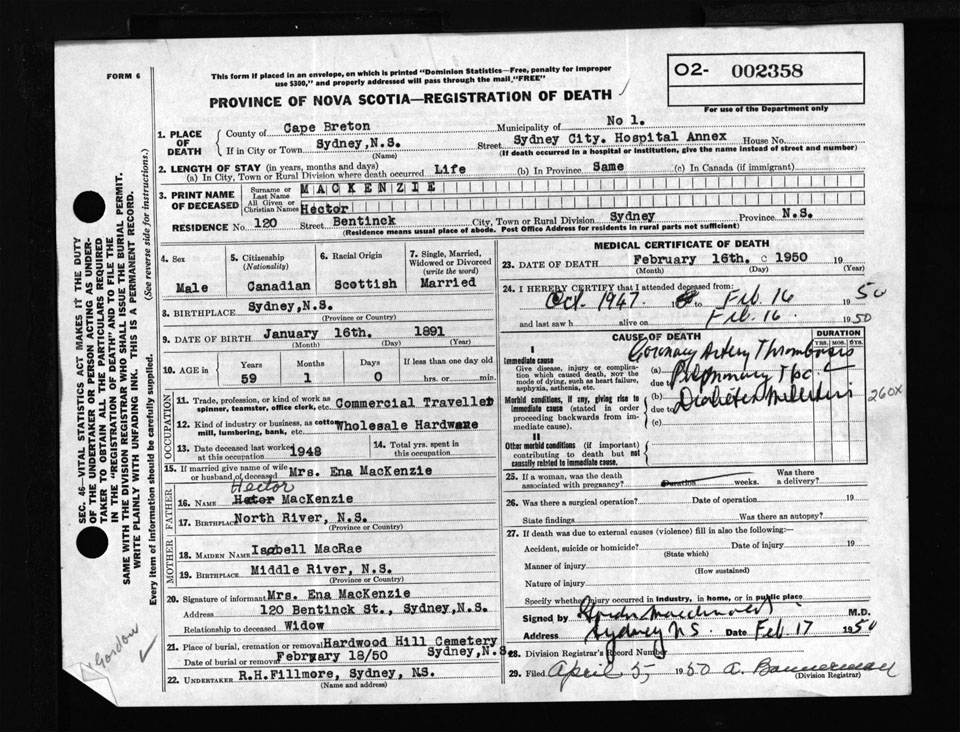 FORM 6
This form if placed in an envelope, on which is printed "Dominion Statistics—Free, penalty for improper
use $300," and properly addressed will pass through the mail "FREE"
O2- 002358
For use of the Department only
PROVINCE OF NOVA SCOTIA—REGISTRATION OF DEATH
1. PLACE OF DEATH
County of Cape Breton Municipality of No 1.
If in City or Town Sydney,N.S. Street Sydney City. Hospital Annex House No.
(Name) (If death occurred in a hospital or institution, give the name instead of street and number)
2. LENGTH OF STAY (in years, months and days)
(a) In City, Town or Rural Division where death occurred Life (b) In Province Same (c) In Canada (if immigrant)
3. PRINT NAME OF DECEASED
Surname or Last Name MACKENZIE
All Given or Christian Names Hector
RESIDENCE No. 120 Street Bentinck City, Town or Rural Division Sydney Province N.S.
(Residence means usual place of abode. Post Office Address for residents in rural parts not sufficient)
4. Sex
Male
5. Citizenship (Nationality)
Canadian
6. Racial Origin
Scottish
7. Single, Married, Widowed or Divorced (write the word)
Married
8. BIRTHPLACE Sydney,N.S.
(Province or Country)
9. DATE OF BIRTH January 16th. 1891
(Month) (Day) (Year)
10. AGE in
Years Months Days If less than one day old
59 1 0 hrs. or min.
OCCUPATION
11. Trade, profession, or kind of work as spinner, teamster, office clerk, etc. Commercial Traveller
12. Kind of industry or business, as cotton mill, lumbering, bank, etc. Wholesale Hardware
13. Date deceased last worked at this occupation 1948
14. Total yrs. spent in this occupation
15. If married give name of wife or husband of deceased Mrs. Ena MacKenzie
FATHER
Hector
16. NAME Hetor MacKenzie
17. BIRTHPLACE North River, N.S.
(Province or Country)
MOTHER
18. MAIDEN NAME Isabell MacRae
19. BIRTHPLACE Middle River, N.S.
(Province or Country)
20. Signature of informant Mrs. Ena MacKenzie
Address 120 Bentinck St., Sydney,N.S.
Relationship to deceased Widow
21. Place of burial, cremation or removal Hardwood Hill Cemetery
Sydney,N.S.
Date of burial or removal February 18/50
22. UNDERTAKER R.H.Fillmore, Sydney, NS.
(Name and address)
MEDICAL CERTIFICATE OF DEATH
23. DATE OF DEATH February 16th. c 1950 19
(Month) (Day) (Year)
24. I HEREBY CERTIFY that I attended deceased from:
Oct. 1947 to Feb 16 1950
and last saw h alive on Feb. 16. 1950
CAUSE OF DEATH
DURATION
YRS. MOS. DYS.
I
Immediate cause
Give disease, injury or complication which caused death, NOT the mode of dying, such as heart failure, asphyxia, asthenia, etc.
(a) Coronary Artery Thrombosis
due to
Morbid conditions, if any, giving rise to immediate cause (stated in order proceeding backwards from immediate cause).
(b) Pulmonary Tbc.
due to Diabetes Mellitus 260X
(c)
II
Other morbid conditions (if important) contributing to death but not causally related to immediate cause.
25. If a woman, was the death associated with pregnancy? Duration weeks. Was there a delivery?
26. Was there a surgical operation? Date of operation 19
State findings Was there an autopsy?
27. If death was due to external causes (violence) fill in also the following—
Accident, suicide or homicide? Date of injury 19
(State which)
Manner of injury
(How sustained)
Nature of injury
Specify whether injury occurred in industry, in home, or in public place
Signed by M.D.
Address Sydney NS. Date Feb 17 1950
28. Division Registrar's Record Number
29. Filed April 5, 1950 A. Bannerman
(Division Registrar)
SEC. 46—VITAL STATISTICS ACT MAKES IT THE DUTY
OF THE UNDERTAKER OR PERSON ACTING AS UNDER-
TAKER TO OBTAIN ALL THE PARTICULARS REQUIRED
IN THE "REGISTRATION OF DEATH" AND TO FILE THE
SAME WITH THE DIVISION REGISTRAR WHO SHALL ISSUE THE BURIAL PERMIT.
WRITE PLAINLY WITH UNFADING INK. THIS IS A PERMANENT RECORD.
Every item of information should be carefully supplied. (See reverse side for instructions.)
Gordon